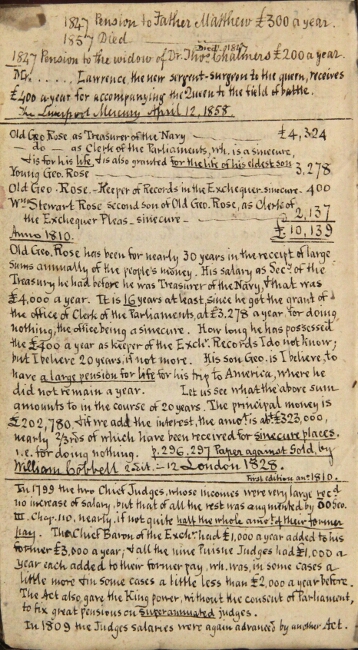 1847 Pension to Father Matthew £300 a year.
1857 Died
Died 1847
1847 Pension to the widow of Dr. Thos. Chalmers £200 a year.
Mr. ..... Lawrence the new serjent-surgeon to the queen, receives
£400 a year for accompanying the Queen to the field of battle.
The Liverpool Mercury April 12, 1858.
Old Geo. Rose as Treasurer of the Navy £4,324
— do — as Clerk of the Parliaments, wh. is a sinecure,
& is for his life, & is also granted for the life of his eldest son
Young Geo. Rose 3,278
Old Geo. Rose.—Keeper of Records in the Exchequer. sinecure 400
Wm. Stewart Rose second son of Old Geo. Rose, as Clerk of
the Exchequer Pleas. sinecure 2,137
Anno 1810. £10,139
Old Geo. Rose has been for nearly 30 years in the receipt of large
sums annually of the people's money. His salary as Secy. of the
Treasury he had before he was Treasurer of the Navy, & that was
£4,000 a year. It is 16 years at least since he got the grant of
the office of Clerk of the Parliaments, at £3,278 a year, for doing
nothing, the office being a sinecure. How long he has possessed
the £400 a year as keeper of the Exch. Records I do not know;
but I believe 20 years, if not more. His son Geo. is I believe, to
have a large pension for life for his trip to America, where he
did not remain a year. Let us see what the above sum
amounts to in the course of 20 years. The principal money is
£202,780, & if we add the interest, the amot. is abt. £323,000,
nearly 2/3rds of which have been received for sinecure places,
i.e. for doing nothing. p. 296. 297 Paper against Gold, by
William Cobbett edit. — 12 London 1828.
First edition ano 1810.
In 1799 the two Chief Judges, whose incomes were very large recd.
no increase of salary, but that of all the rest was augmented by Geo.
III. Chap. 110, nearly, if not quite half the whole amot. of their former
pay. The Chief Baron of the Exch. had £1,000 a year added to his
former £3,000 a year; & all the nine Puisne Judges had £1,000 a
year each added to their former pay, wh. was, in some cases a
little more & in some cases a little less than £2,000 a year before.
The Act also gave the King power, without the consent of Parliament,
to fix great pensions on superannuated judges.
In 1809 the Judges salaries were again advanced by another Act.